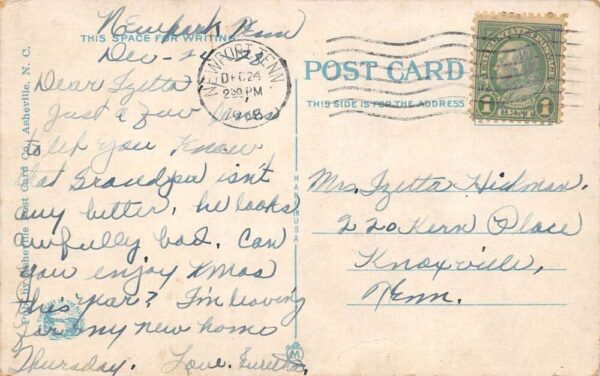 Newpark Tenn
THIS SPACE FOR WRITING
Dec - 24 - 28
Dear Izetta
Just a few
to let you know
that Grandpa isn't
any butter, he looks
awfully bad. Can
you enjoy Xmas
this year? I'm leaving
for my new home
Thursday. Love.
Pub. by Asheville Post Card Co., Asheville, N. C.
MADE IN USA
NEWPORT, TENN.
DEC 24
2 PM
1928
POST CARD
THIS SIDE IS FOR THE ADDRESS
UNITED STATES POSTAGE
1 CENT 1
Mrs. Izetta Hickman.
220 Kern Place
Knoxville,
Tenn.